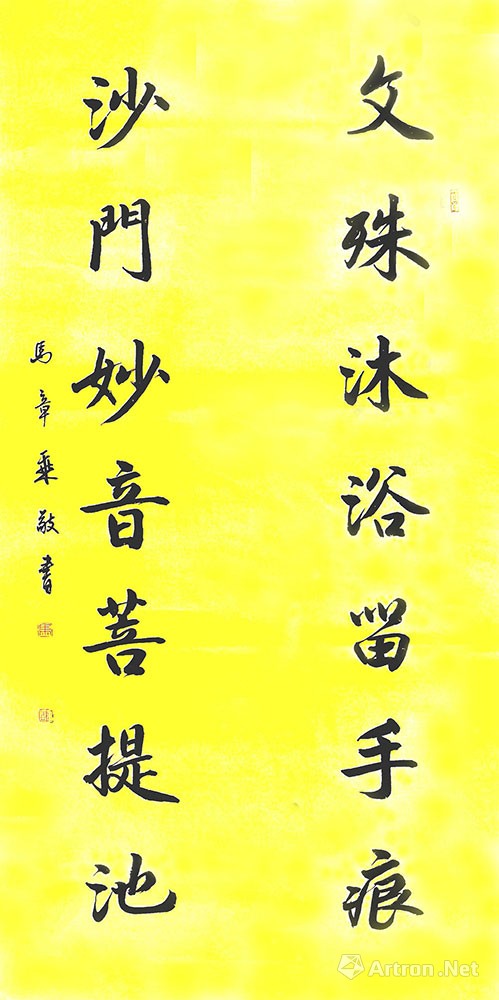 文殊沐浴留手痕
沙門妙音菩提池
馬章乘敬書
Artron.Net